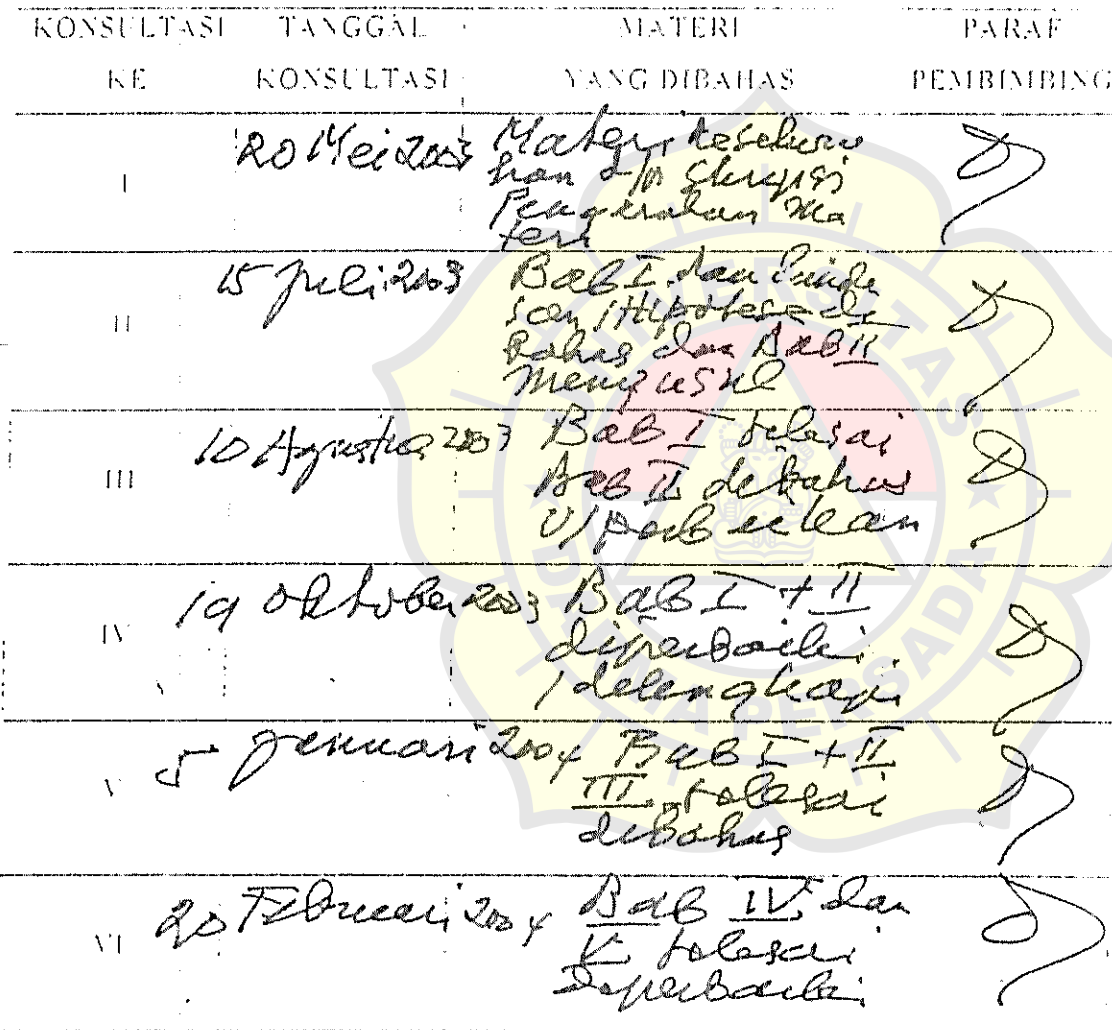 KONSULTASI TANGGAL MATERI PARAF
KE KONSULTASI YANG DIBAHAS PEMBIMBING
I 20 Mei 2003 Materi keseluru
han d/p Skripsi
Pengerahan Ma
teri
II 15 Juli 2003 Bab I dan
san / Hipotesa di
bahas dan Bab II
menyusul
III 10 Agustus 2003 Bab I selesai
Bab II dibahas
U/ perbaikan
IV 19 Oktober 2003 Bab I + II
diperbaiki
/ dilengkapi
V 5 Januari 2004 Bab I + II
III selesai
dibahas
VI 20 Februari 2004 Bab IV dan
V selesai
Diperbaiki
UNIVERSITAS
DARMA PERSADA